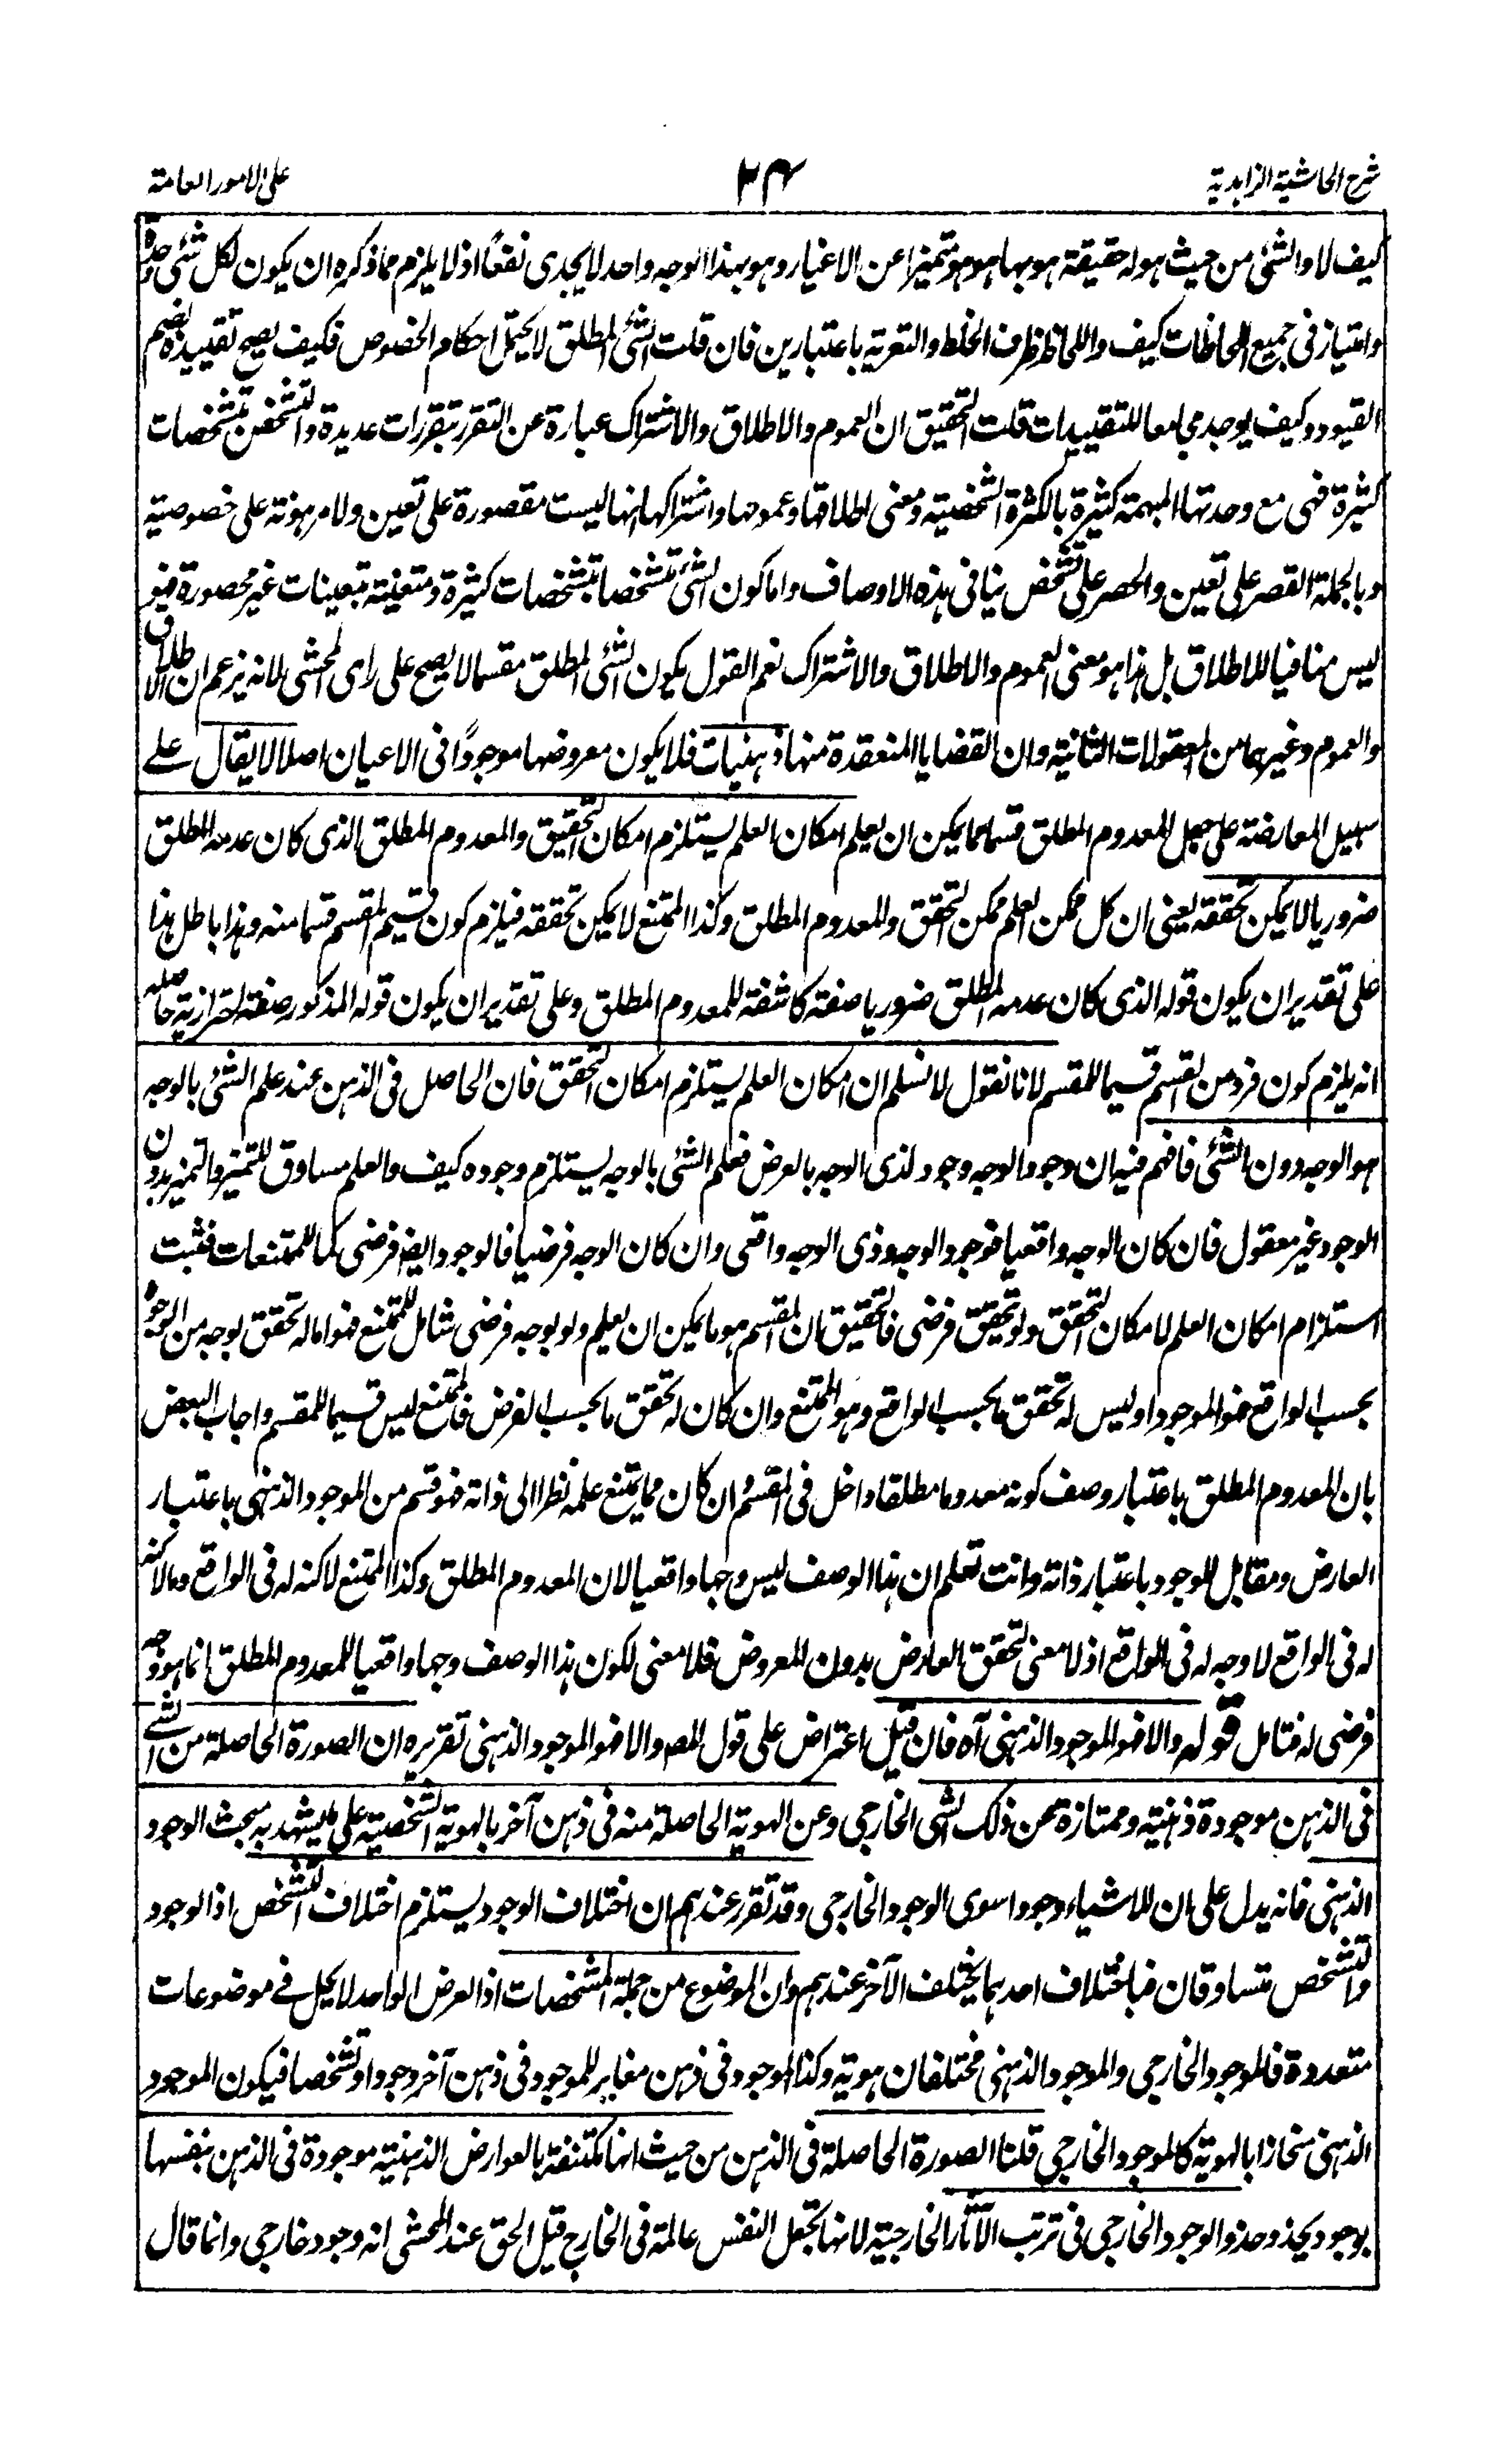 شرح الحاشية الزاهدية
٢٣٤
على الامور العامة
كيف لا والشئ من حيث هو له حقيقة هو بها هو هو متميزا عن الاغيار وهو بهذا الوجه واحد لا يجدى نفعًا اذ لا يلزم مما ذكره ان يكون لكل شئ وحدة
وامتياز فى جميع اللحاظات كيف واللحاظ ظرف الخلط والتعرية باعتبارين فان قلت الشئ المطلق لا يحتمل احكام الخصوص فكيف يصح تقييده بضم
القيود وكيف يوجد مجامعا للتقييدات قلت التحقيق ان العموم والاطلاق والاشتراك عبارة عن التقرر بتقررات عديدة والتشخص بتشخصات
كثيرة فهى مع وحدتها المبهمة كثيرة بالكثرة الشخصية ومعنى اطلاقها وعمومها واشتراكها انها ليست مقصورة على تعين ولا مرهونة على خصوصية
وبالجملة القصر على تعين والحصر على تشخص ينافى هذه الاوصاف واما كون الشئ متشخصا بتشخصات كثيرة ومتعينة بتعينات غير محصورة فهو
ليس منافيا للاطلاق بل هذا هو معنى العموم والاطلاق والاشتراك نعم القول بكون الشئ المطلق مقسما لا يصح على راى المحشى لانه يزعم ان الاطلاق
والعموم وغيرهما من المعقولات الثانية وان القضايا المنعقدة منها ذهنيات فلا يكون معروضها موجودًا فى الاعيان اصلا لا يقال على
سبيل المعارضة على جعل المعدوم المطلق قسما مما يمكن ان يعلم امكان العلم يستلزم امكان التحقيق والمعدوم المطلق الذى كان عدمه المطلق
ضروريا لا يمكن تحققه يعنى ان كل ممكن العلم ممكن التحقق والمعدوم المطلق وكذا الممتنع لا يمكن تحققه فيلزم كون قسيم المقسم قسما منه وهذا باطل هذا
على تقدير ان يكون قوله الذى كان عدمه المطلق ضروريا صفة كاشفة للمعدوم المطلق وعلى تقدير ان يكون قوله المذكور صفة احترازية حاصله
انه يلزم كون فرد من القسم قسيما للمقسم لانا نقول لا نسلم ان امكان العلم يستلزم امكان التحقق فان الحاصل فى الذهن عند علم الشئ بالوجه
هو الوجه دون الشئ فافهم فيه ان وجود الوجه وجود لذى الوجه بالعرض فعلم الشئ بالوجه يستلزم وجوده كيف والعلم مساوق للتميز والتميز بدون
الوجود غير معقول فان كان الوجه واقعيا فوجود الوجه وذى الوجه واقعى وان كان الوجه فرضيا فالوجود ايضا فرضى كما للممتنعات فثبت
استلزام امكان العلم لامكان التحقق ولو تحقق فرضى فالتحقيق ان المقسم هو ما يمكن ان يعلم ولو بوجه فرضى شامل للممتنع فهو اما له تحقق بوجه من الوجوه
بحسب الواقع فهو الموجود او ليس له تحقق ما بحسب الواقع وهو الممتنع وان كان له تحقق ما بحسب الفرض فالممتنع ليس قسيما للمقسم واجاب البعض
بان المعدوم المطلق باعتبار وصف كونه معدوما مطلقا داخل فى المقسم وان كان مما يمتنع علمه نظرا الى ذاته فهو قسم من الموجود الذهنى باعتبار
العارض ومقابل للوجود باعتبار ذاته وانت تعلم ان هذا الوصف ليس وجها واقعيا لان المعدوم المطلق وكذا الممتنع لا كنه له فى الواقع وما لا كنه
له فى الواقع لا وجه له فى الواقع اذ لا معنى لتحقق العارض بدون المعروض فلا معنى لكون هذا الوصف وجها واقعيا للمعدوم المطلق انما هو وجه
فرضى له فتامل قوله والا فهو الموجود الذهنى آه فان قيل اعتراض على قول المص والا فهو الموجود الذهنى تقريره ان الصورة الحاصلة من الشئ
فى الذهن موجودة ذهنية وممتازة عن ذلك الشئ الخارجى وعن الهوية الحاصلة منه فى ذهن آخر بالهوية الشخصية على ما يشهد به مبحث الوجود
الذهنى فانه يدل على ان للاشياء وجودا سوى الوجود الخارجى وقد تقرر عندهم ان اختلاف الوجود يستلزم اختلاف التشخص اذ الوجود
والتشخص متساوقان فباختلاف احدهما يختلف الآخر عندهم وان الموضوع من جملة المشخصات اذ العرض الواحد لا يحل فے موضوعات
متعددة فالموجود الخارجى والموجود الذهنى مختلفان هوية وكذا الموجود فى ذهن مغاير للموجود فى ذهن آخر وجودا وتشخصا فيكون الموجود
الذهنى منحازا بالهوية كالموجود الخارجى قلنا الصورة الحاصلة فى الذهن من حيث انها مكتنفة بالعوارض الذهنية موجودة فى الذهن بنفسها
بوجود يحذو حذو الوجود الخارجى فى ترتب الآثار الخارجية لانها تجعل النفس عالمة فى الخارج قيل الحق عند المحشى انه وجود خارجى وانما قال